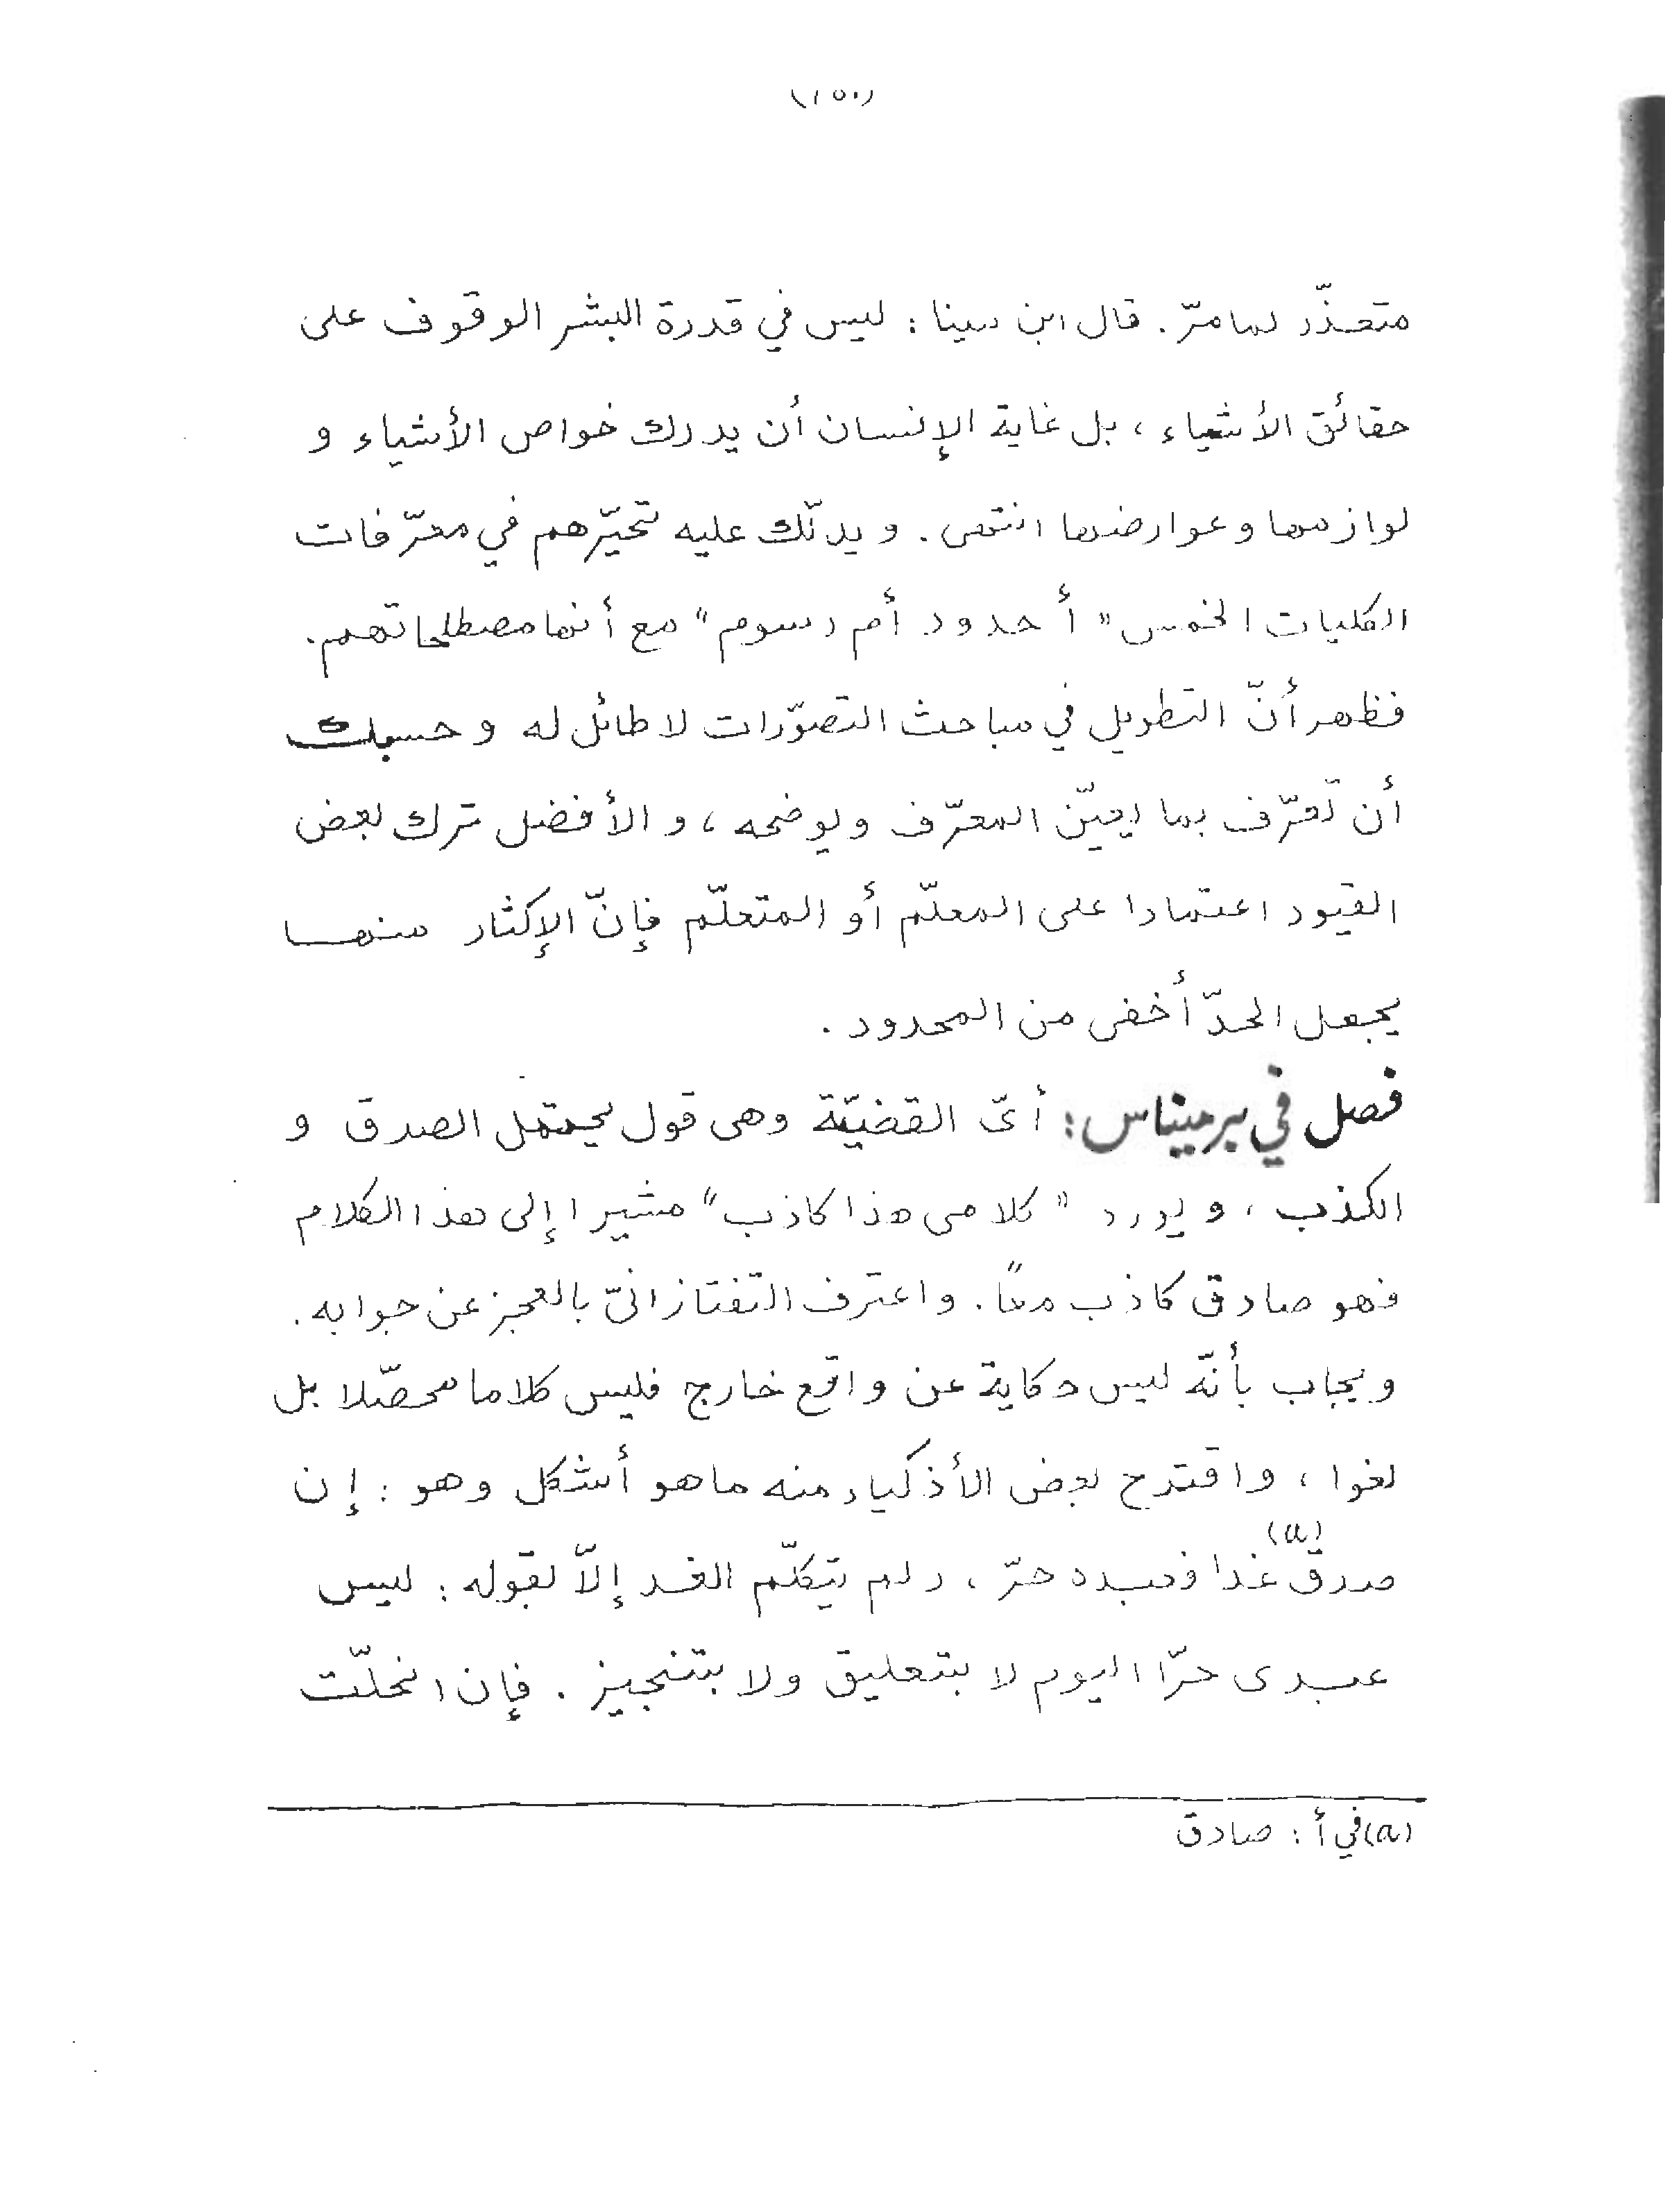 (١٥٠)
متعذّر لما مرّ. قال ابن سينا : ليس في قدرة البشر الوقوف على
حقائق الأشياء ، بل غاية الإنسان أن يدرك خواص الأشياء و
لوازمها وعوارضها انتهى. ويدلّك عليه تحيّرهم في معرّفات
الكليات الخمس " أحدود أم رسوم " مع أنها مصطلحاتهم.
فظهر أنّ التطويل في مباحث التصوّرات لا طائل له وحسبك
أن تعرّف بما يعيّن المعرّف ويوضحه ، والأفضل ترك بعض
القيود اعتمادا على المعلّم أو المتعلّم فإنّ الإكثار منها
يجعل الحدّ أخفى من المحدود .
فصل في بيرميناس : أىّ القضيّة وهى قول يحتمل الصدق و
الكذب ، ويورد " كلامى هذا كاذب " مشيرا إلى هذا الكلام
فهو صادق كاذب معًا. واعترف التفتازانىّ بالعجز عن جوابه.
ويجاب بأنّه ليس حكاية عن واقع خارج فليس كلاما محصّلا بل
لغوا ، واقترح بعض الأذكياء منه ماهو أشكل وهو : إن
صدق(a) غدا فعبده حرّ ، ولم يتكلّم الغد إلاّ بقوله : ليس
عبدى حرّا اليوم لا بتعليق ولا بتنجيز . فإن انحلّت
(a) في أ : صادق